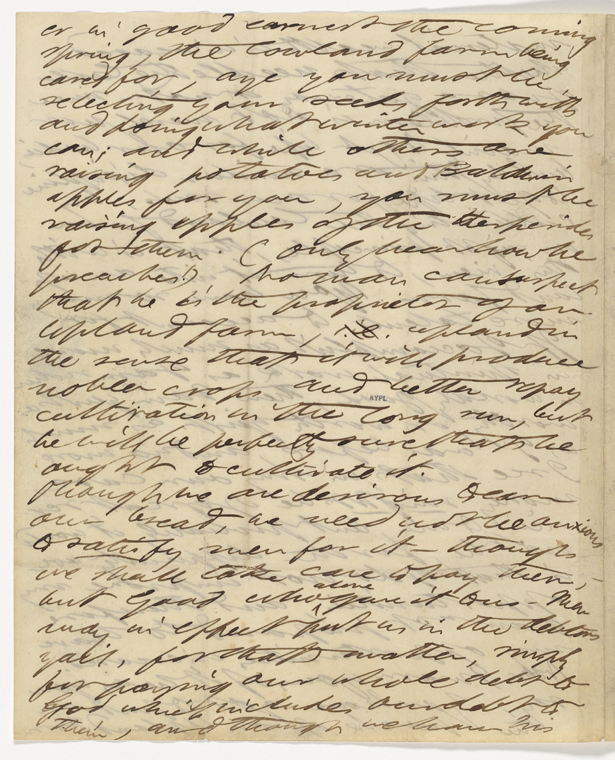 er in good earnest the coming
spring, the lowland farm being
cared for, aye you must be
selecting your seeds forthwith
and doing what winter work you
can; and while others are
raising potatoes and Baldwin
apples for you, you must be
raising apples of the Hesperides
for them. (Only hear how he
preaches!) No man can suspect
that he is the proprietor of an
upland farm, upland in
the sense that it will produce
nobler crops and better repay
cultivation in the long run, but
he will be perfectly sure that he
ought to cultivate it.
NYPL
Though we are desirous to earn
our bread, we need not be anxious
to satisfy men for it— though
we shall take care to pay them,
but Good who alone gave it to us. Men
may in effect put us in the debtors
jail, for that matter, simply
for paying our whole debt to
God which includes our debt to
them, and though we have His